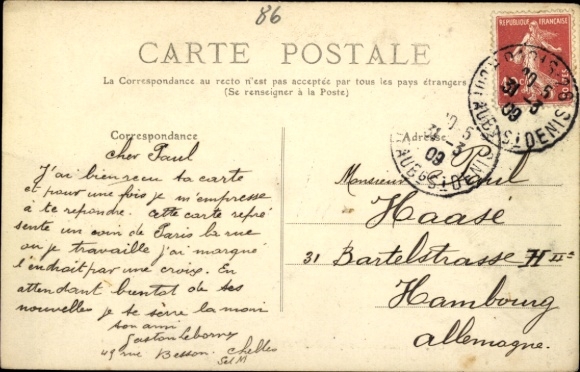 86
CARTE POSTALE
RÉPUBLIQUE FRANÇAISE
La Correspondance au recto n'est pas acceptée par tous les pays étrangers
(Se renseigner à la Poste)
Correspondance
cher Paul
J'ai bien recu ta carte
et pour une fois je m'empresse
à te repondre. Cette carte repré
sente un coin de Paris la rue
ou je travaille j'ai marqué
l'indroit par une croix. En
attendant bientot de ses
nouvelles je te sèrre la main
ton ami
Gaston Leborne
49 rue Besson. Chelles
Set M
Adresse
Monsieur Paul
Haasé
31 Bartelstrasse H II
Hambourg
Allemagne.
10
R. DU FG ST DENIS
31-3
09